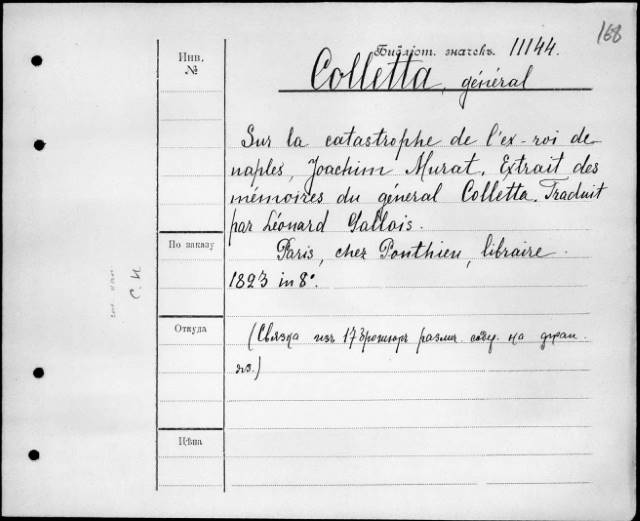 168
Библіот. значекъ. 11144.
Инв.
№
Colletta, général
Sur la catastrophe de l'ex-roi de
naples, Joachim Murat. Extrait des
mémoires du général Colletta. Traduit
par Léonard Gallois.
По заказу
Paris, chez Ponthieu, libraire.
1823 in 8°.
С. К
Откуда
(Связка изъ 17 брошюръ разл. содер. на фран.
яз.)
Цѣна